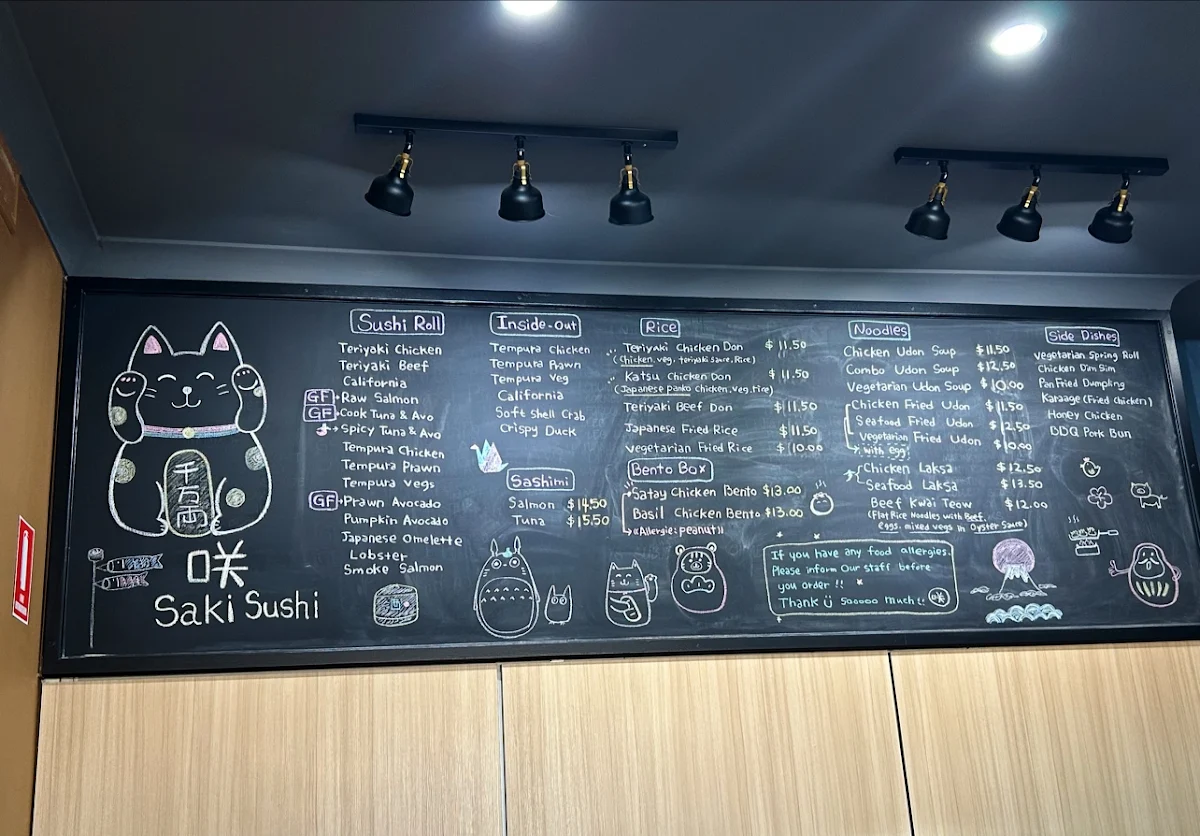 千万両
咲
Saki Sushi
Sushi Roll
Teriyaki Chicken
Teriyaki Beef
California
GF Raw Salmon
GF Cook Tuna & Avo
Spicy Tuna & Avo
Tempura Chicken
Tempura Prawn
Tempura Vegs
GF Prawn Avocado
Pumpkin Avocado
Japanese Omelette
Lobster
Smoke Salmon
Inside-out
Tempura Chicken
Tempura Prawn
Tempura Veg
California
Soft Shell Crab
Crispy Duck
Sashimi
Salmon $14.50
Tuna $15.50
Rice
Teriyaki Chicken Don $11.50
(Chicken, veg, teriyaki Sauce, Rice)
Katsu Chicken Don $11.50
(Japanese panko chicken, veg, rice)
Teriyaki Beef Don $11.50
Japanese Fried Rice $11.50
Vegetarian Fried Rice $10.00
Bento Box
Satay Chicken Bento $13.00
Basil Chicken Bento $13.00
«Allergie: peanut»
Noodles
Chicken Udon Soup $11.50
Combo Udon Soup $12.50
Vegetarian Udon Soup $10.00
Chicken Fried Udon $11.50
Seafood Fried Udon $12.50
Vegetarian Fried Udon $10.00
with egg
Chicken Laksa $12.50
Seafood Laksa $13.50
Beef Kwai Teow $12.00
(Flat Rice Noodles with Beef,
eggs, mixed vegs in Oyster Sauce)
If you have any food allergies.
Please inform Our staff before
you order !!
Thank Ü Sooooo much!!
Side Dishes
Vegetarian Spring Roll
Chicken Dim Sim
Pan Fried Dumpling
Karaage (Fried chicken)
Honey Chicken
BBQ Pork Bun